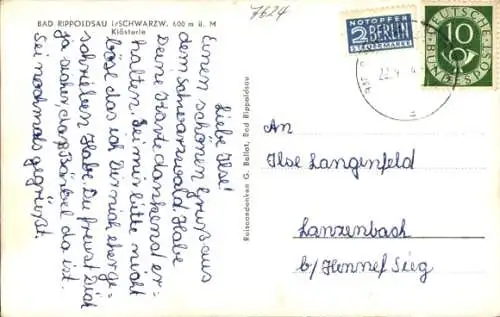 BAD RIPPOLDSAU i/SCHWARZW. 600 m ü. M
Klösterle
7624
NOTOPFER
2 BERLIN
STEUERMARKE
DEUTSCHE
BUNDESPOST
10
Liebe Ilse!
Einen schönen Gruß aus
dem Schwarzwald. Habe
Deine Karte dankend er-
halten. Sei mir bitte nicht
böse das ich Dir nich eher ge-
schrieben Habe. Du freust Dich
ja sicher, das Bärbel da ist.
Sei nochmals gegrüßt.
Reiseandenken G. Ballot, Bad Rippoldsau
An
Ilse Langenfeld
Lanzenbach
b/ Hennef Sieg